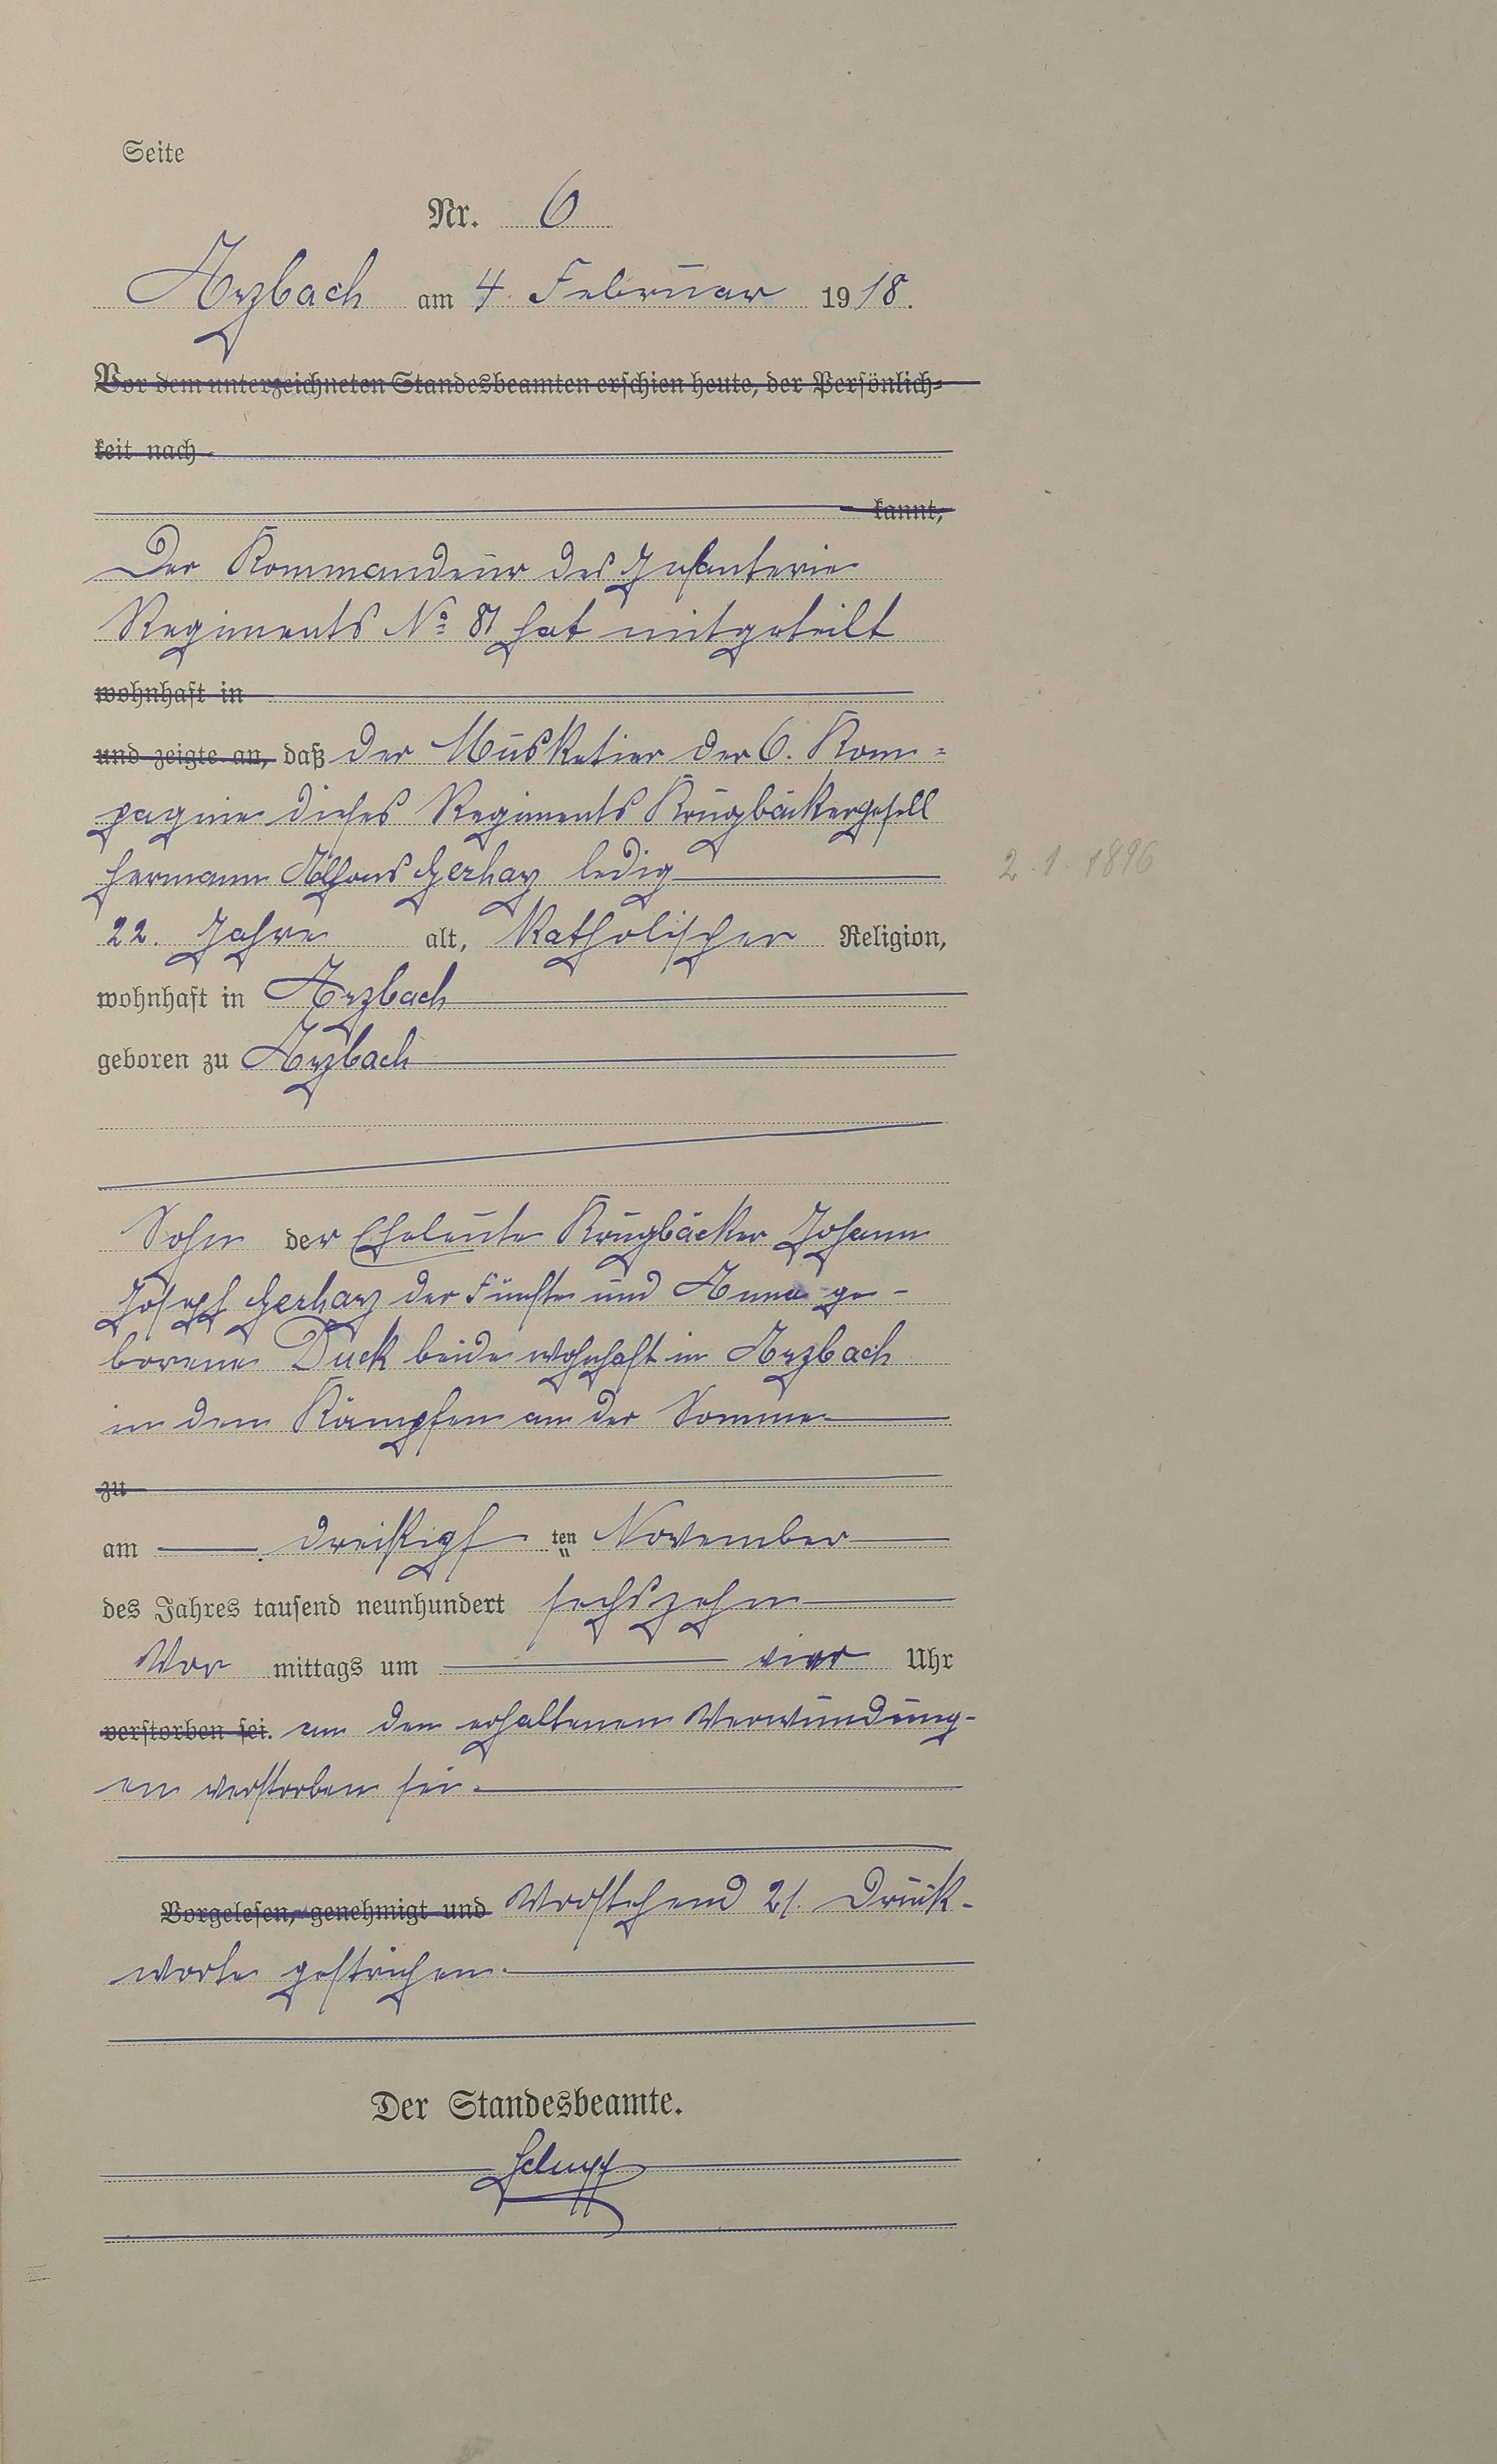 Seite
Nr. 6
Arzbach am 4. Februar 1918.
Vor dem unterzeichneten Standesbeamten erschien heute, der Persönlich-
keit nach
kannt,
Der Kommandeur des Infanterie
Regiments No 81 hat mitgeteilt
wohnhaft in
und zeigte an, daß der Musketier der 6. Kom-
pagnie dieses Regiments Krugbäckergesell
Hermann Alfons Gerharz ledig
22. Jahre alt, katholischer Religion,
wohnhaft in Arzbach
geboren zu Arzbach
2.1.1896
Sohn der Eheleute Krugbäcker Johann
Joseph Gerharz der Fünfte und Anna ge-
borene Duck beide wohnhaft in Arzbach
in den Kämpfen an der Somme
zu
am dreißigsten November
des Jahres tausend neunhundert sechszehn
Vor mittags um vier Uhr
verstorben sei. an den erhaltenen Verwundung-
en verstorben sei.
Vorgelesen, genehmigt und Vorstehend 21. Druck-
worte gestrichen.
Der Standesbeamte.